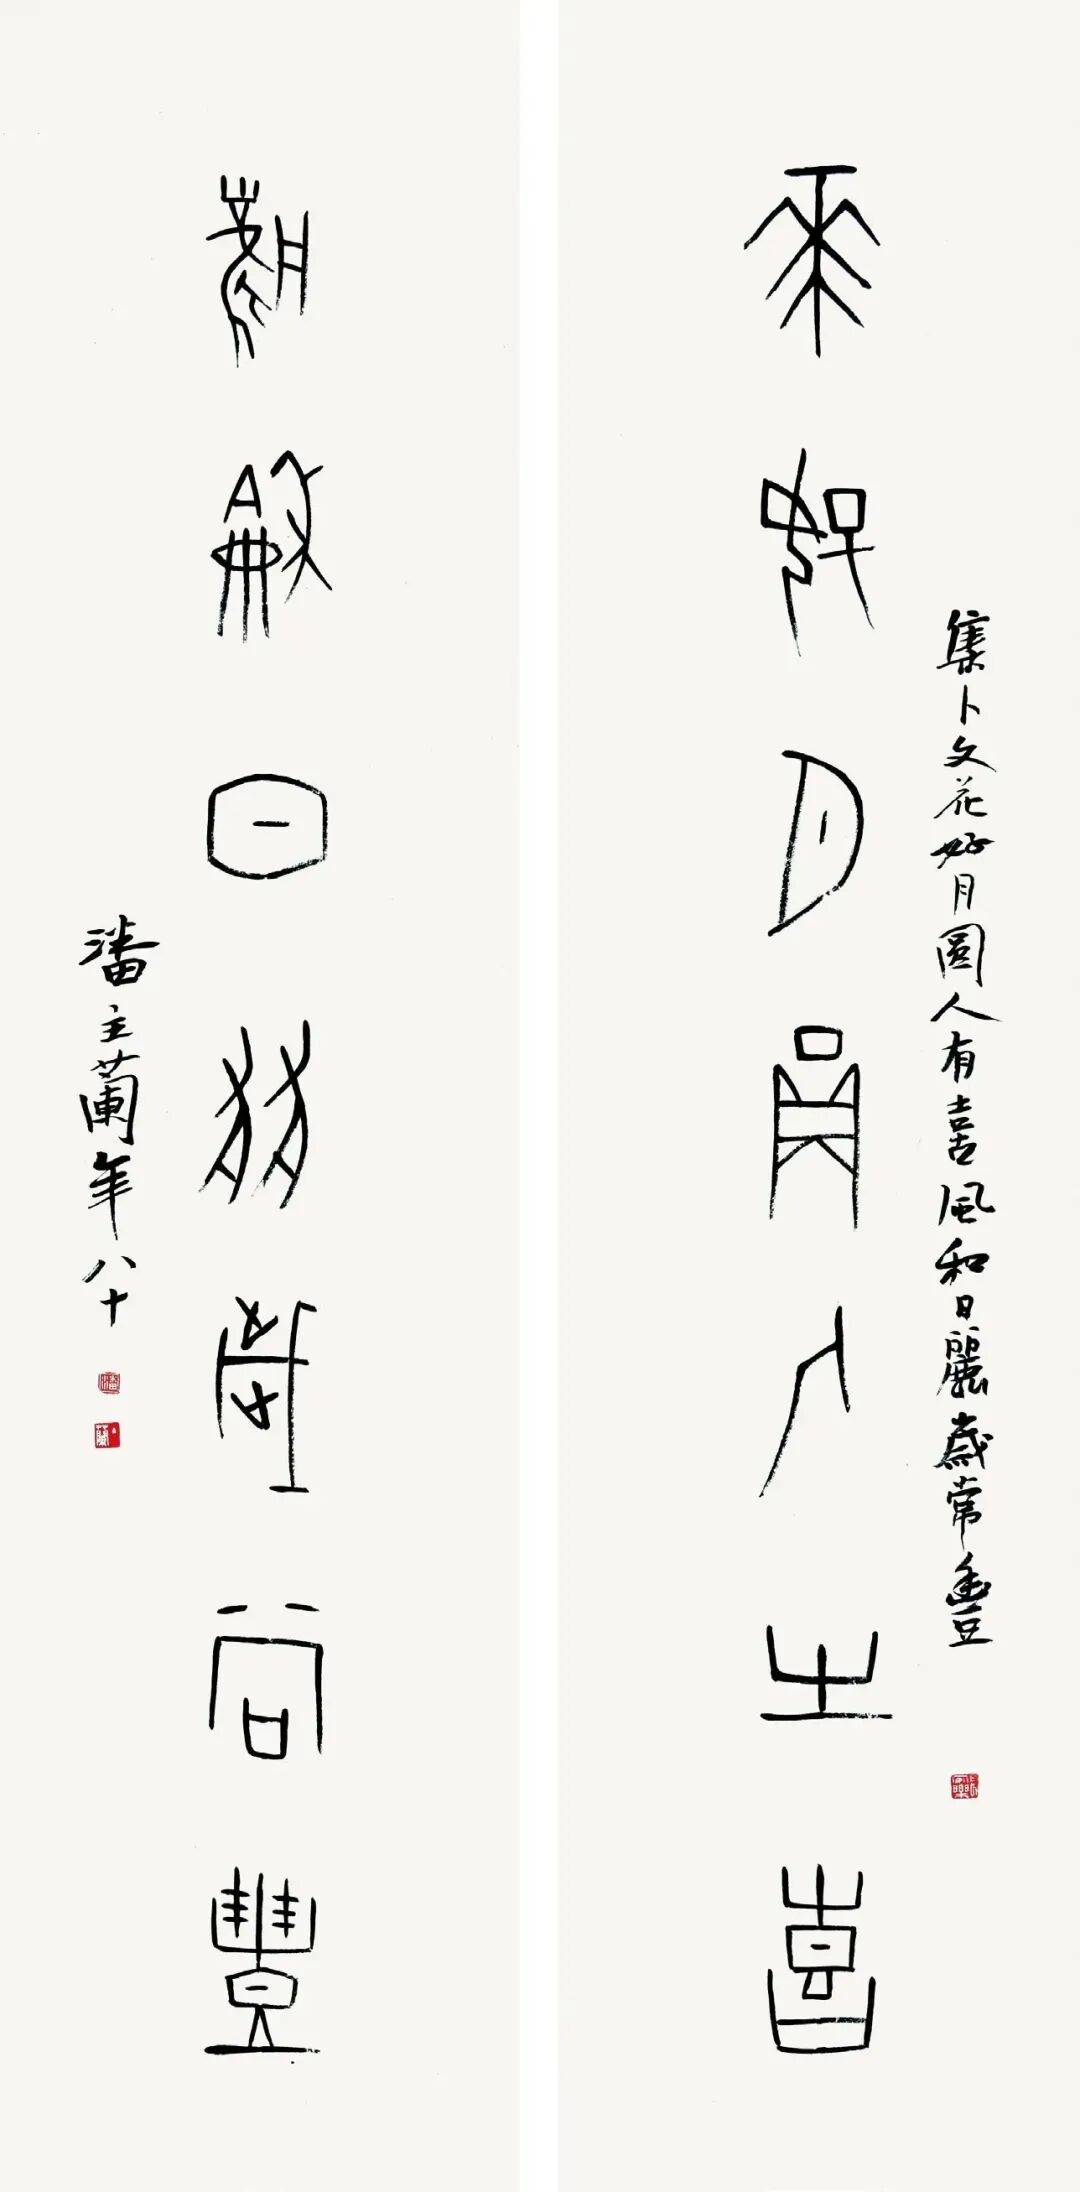 集卜文花好月圓人有喜風和日麗歲常豐
長樂
花好月圓人有喜
風和日麗歲常豐
潘主蘭年八十
潘
主蘭